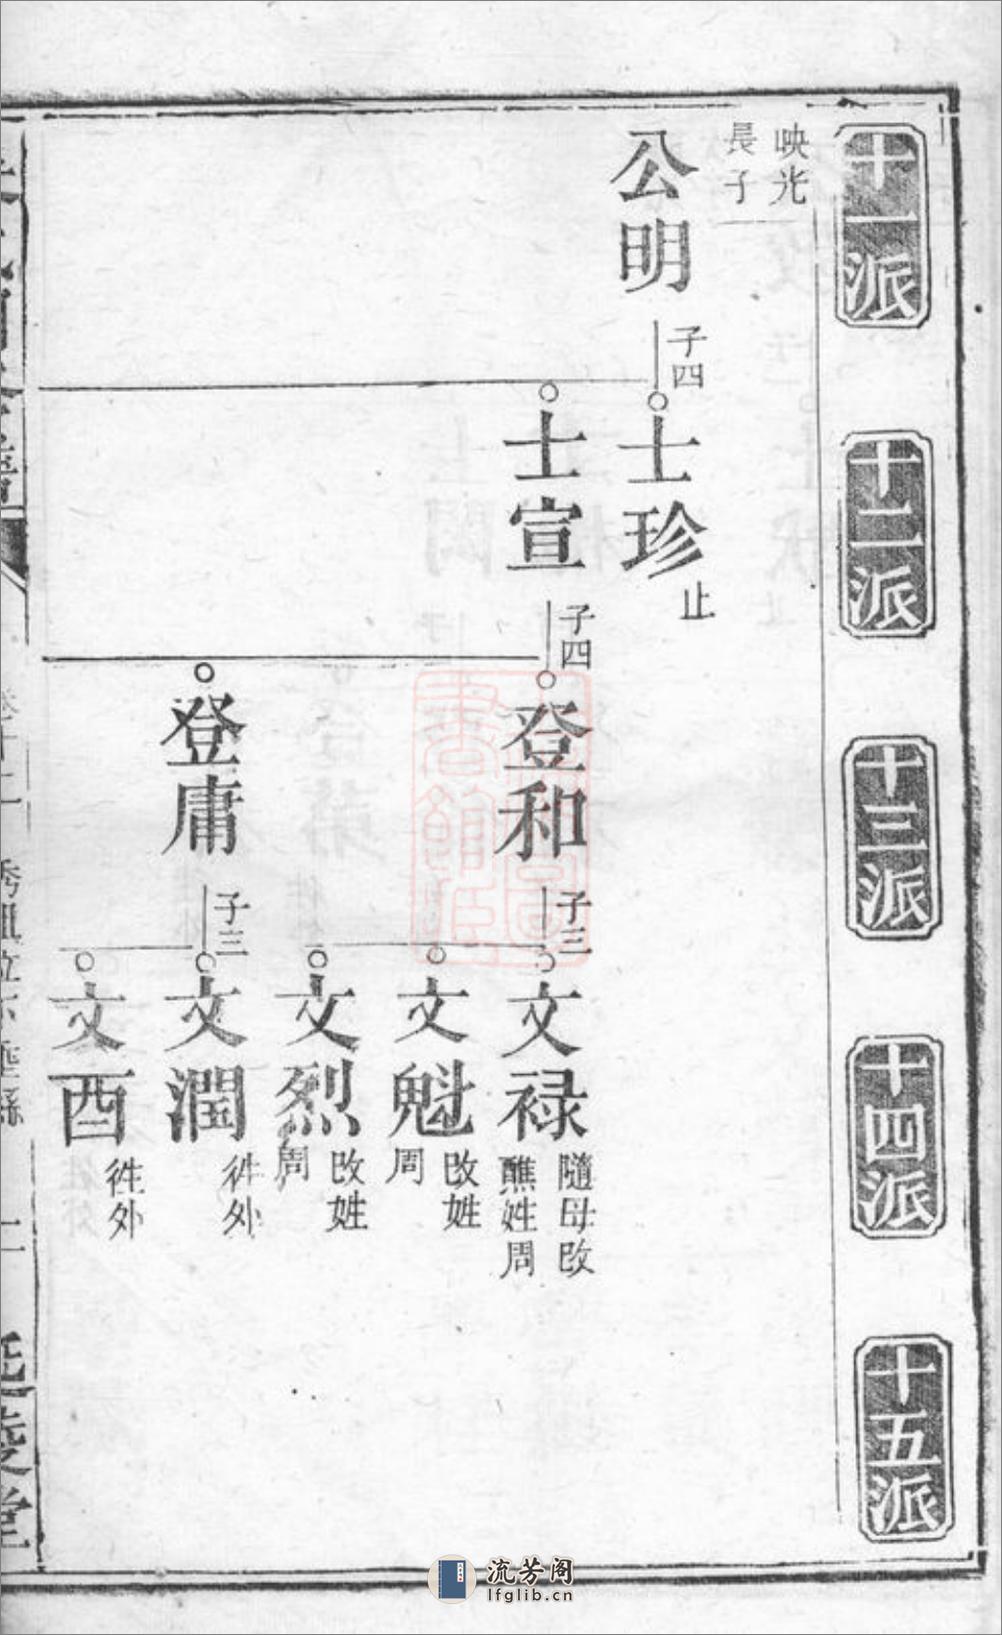 十一派
十二派
十三派
十四派
十五派
映光
長子
公明
子四
士珍
止
士宣
子四
登和
子三
文祿
隨母改
醮姓周
文魁
改姓
周
文烈
改姓
周
登庸
子三
文潤
徃外
文酉
徃外
流芳阁
lfglib.cn